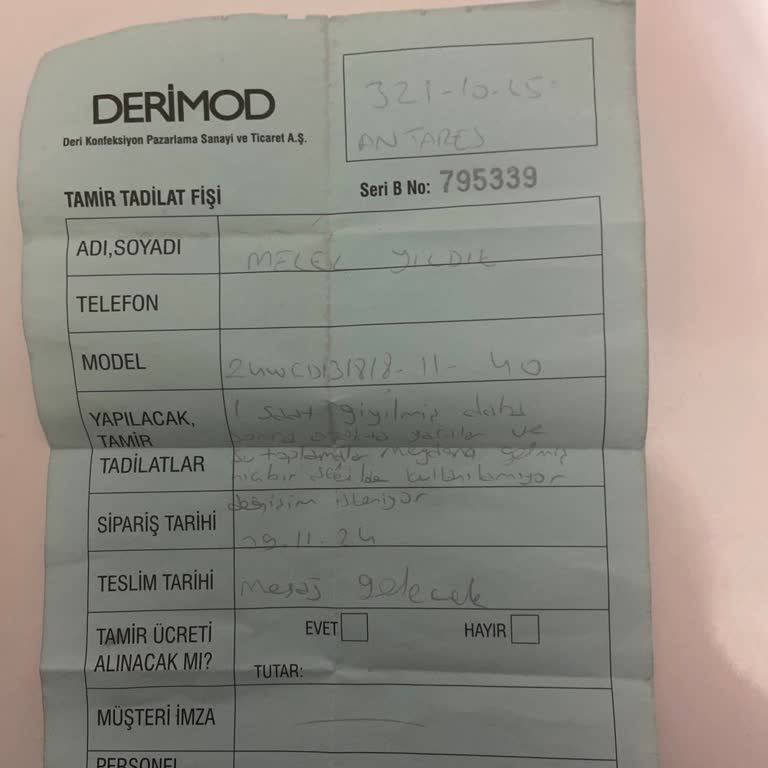 DERİMOD
Deri Konfeksiyon Pazarlama Sanayi ve Ticaret A.Ş.
321-10-25
ANTARES
TAMİR TADİLAT FİŞİ
Seri B No: 795339
ADI,SOYADI MELEK YILDIZ
TELEFON
MODEL 24WCD131818-11-40
YAPILACAK, TAMİR TADİLATLAR
1 saat giyilmiş daha
sonra ve
su toplamalar meydana gelmiş
hiçbir şekilde kullanılamıyor
değişim isteniyor
SİPARİŞ TARİHİ 29.11.24
TESLİM TARİHİ Mesaj gelecek
TAMİR ÜCRETİ ALINACAK MI? EVET HAYIR
TUTAR:
MÜŞTERİ İMZA
PERSONEL